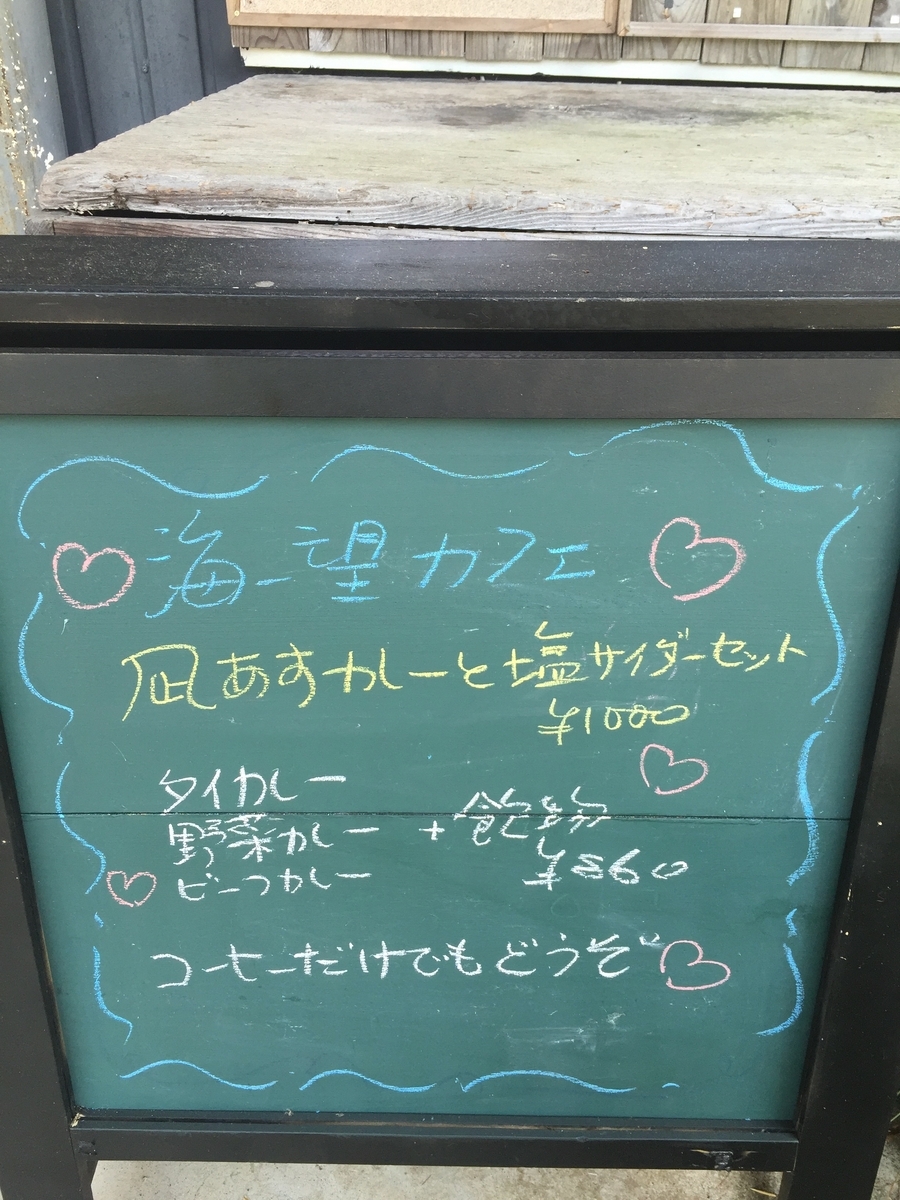 海望カフェ
凪あすカレーと塩サイダーセット
¥1000
タイカレー
野菜カレー + 飲物
ビーフカレー ¥860
コーヒーだけでもどうぞ